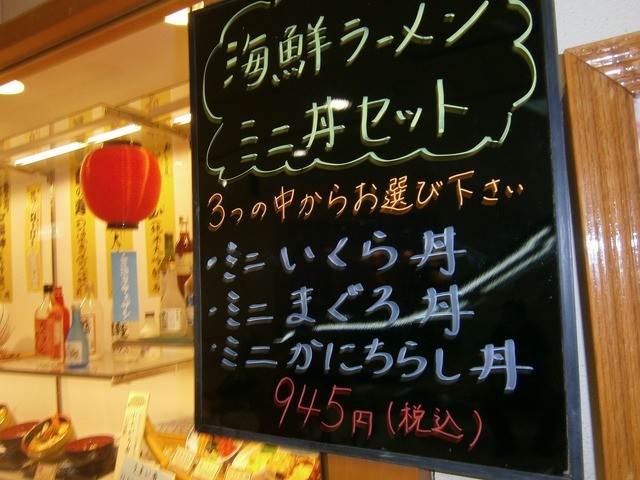 海鮮ラーメン
ミニ丼セット
3つの中からお選び下さい
・ミニいくら丼
・ミニまぐろ丼
・ミニかにちらし丼
945円(税込)